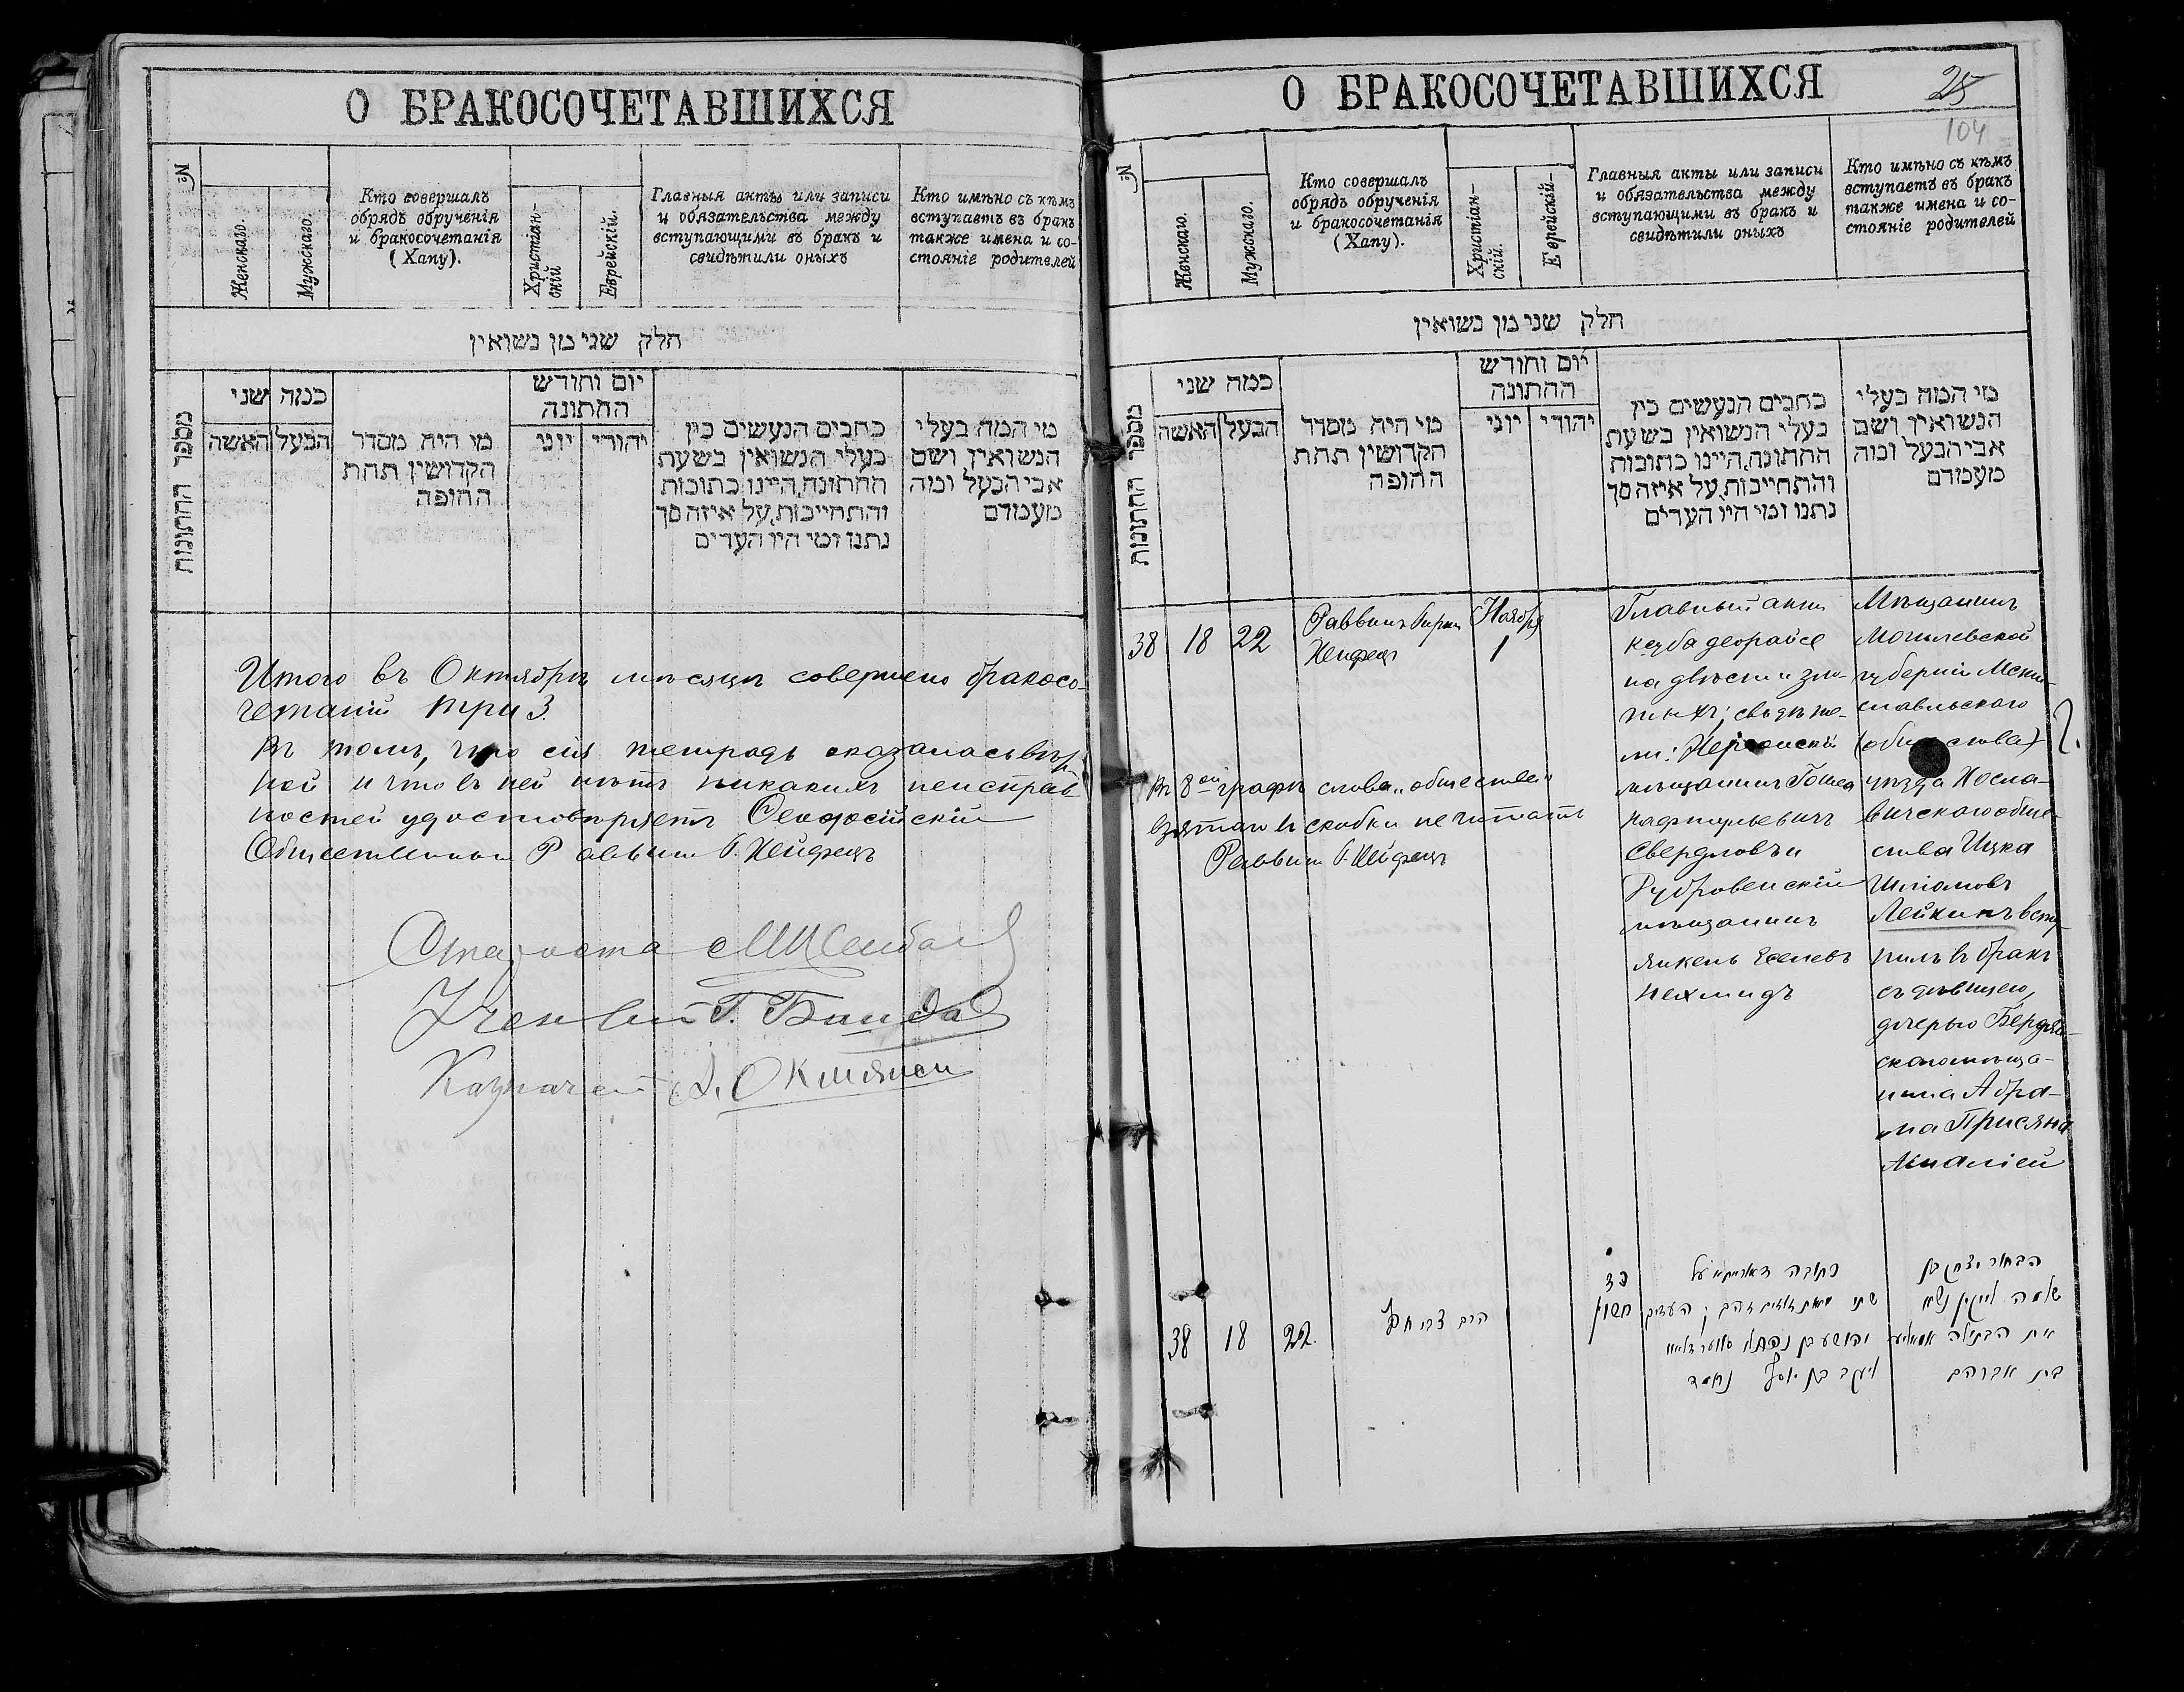 О БРАКОСОЧЕТАВШИХСЯ
№
Женскаго.
Мужскаго.
Кто совершалъ
обрядъ обрученія
и бракосочетанія
(Хапу).
Христіан-
скій
Еврейскій.
Главныя акты или записи
и обязательства между
вступающими въ бракъ и
свидѣтили оныхъ
Кто имѣно съ кѣмъ
вступаетъ въ бракъ
также имена и со-
стояніе родителей
חלק שני מן נשואין
מספר החתונות
כמה שני
הבעל האשה
מי היה מסדר
הקדושין תחת
החופה
יום וחודש
החתונה
יהודי יוני
כתבים הנעשים בין
בעלי הנשואין בשעת
החתונה, היינו כתובות
והתחייבות, על איזה סך
נתנו ומי היו העדים
מי המה בעלי
הנשואין ושם
אבי הבעל ומה
מעמדם
Итого въ Октябрѣ мѣсяцѣ совершено бракосо-
четаній три 3.
Въ томъ, что сія тетрадь оказалась вѣр-
ной и что въ ней нѣтъ никакихъ неисправ-
ностей удостовѣряетъ Ѳеодосійскій
Общественный Раввинъ Г. Хейфецъ
Староста
Ученый Г.
Казначей
О БРАКОСОЧЕТАВШИХСЯ
25
104
№
Женскаго.
Мужскаго.
Кто совершалъ
обрядъ обрученія
и бракосочетанія
(Хапу).
Христіан-
скій.
Еврейскій-
Главныя акты или записи
и обязательства между
вступающими въ бракъ и
свидѣтили оныхъ
Кто имѣно съ кѣмъ
вступаетъ въ бракъ
также имена и со-
стояніе родителей
חלק שני מן נשואין
מספר החתונות
כמה שני
הבעל האשה
מי היה מסדר
הקדושין תחת
החופה
יום וחודש
החתונה
יהודי יוני
כתבים הנעשים בין
בעלי הנשואין בשעת
החתונה, היינו כתובות
והתחייבות, על איזה סך
נתנו ומי היו העדים
מי המה בעלי
הנשואין ושם
אבי הבעל ומה
מעמדם
38 18 22
Раввинъ
Хейфецъ
Ноября
1
Главный актъ
кцуба деорайсе
на двѣсти зло-
тыхъ; свидѣте-
ли: Херсонскій
мѣщанинъ
Нафтульевичъ
Свердловъ и
Дубровенскій
мѣщанинъ
Янкель
Нехмидъ
Мѣщанинъ
Могилевской
губерніи Мсти-
славльскаго
(общества)
уѣзда Хосла-
вичскаго обще-
ства Ицка
Шліомовъ
Лейкинъ всту-
пилъ въ бракъ
съ дѣвицею,
дочерью Бердян-
скаго мѣща-
нина Абра-
ма
Въ 8ой графѣ слова „общества"
взятаго въ скобки не читать
Раввинъ Г. Хейфецъ
38 18 22.
חשון
כתובה דאורייתא על
יהושע בן נפתלי
יעקב בן יוסף נחמד
הבחור יצחק בן
שלמה לייקין נשא
את הבתולה
בת אברהם